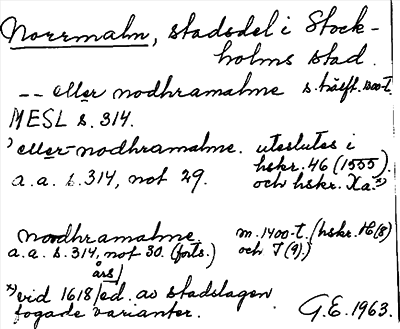 Norrmalm, stadsdel i Stock-
holms stad.
-- eller nodhramalme s. hälft. 1300-t.
MESL s. 314.
*) eller nodhramalme. uteslutes i
hskr. 46 (1555).
a.a. s. 314, not 29. och hskr. Xa.
nordhramalme m. 1400-t. (hskr. H (8)
a.a. s. 314, not 30. (forts.) och I (9).)
års
*) vid 1618/ed. av stadslagen
fogade varianter. G.E. 1963.